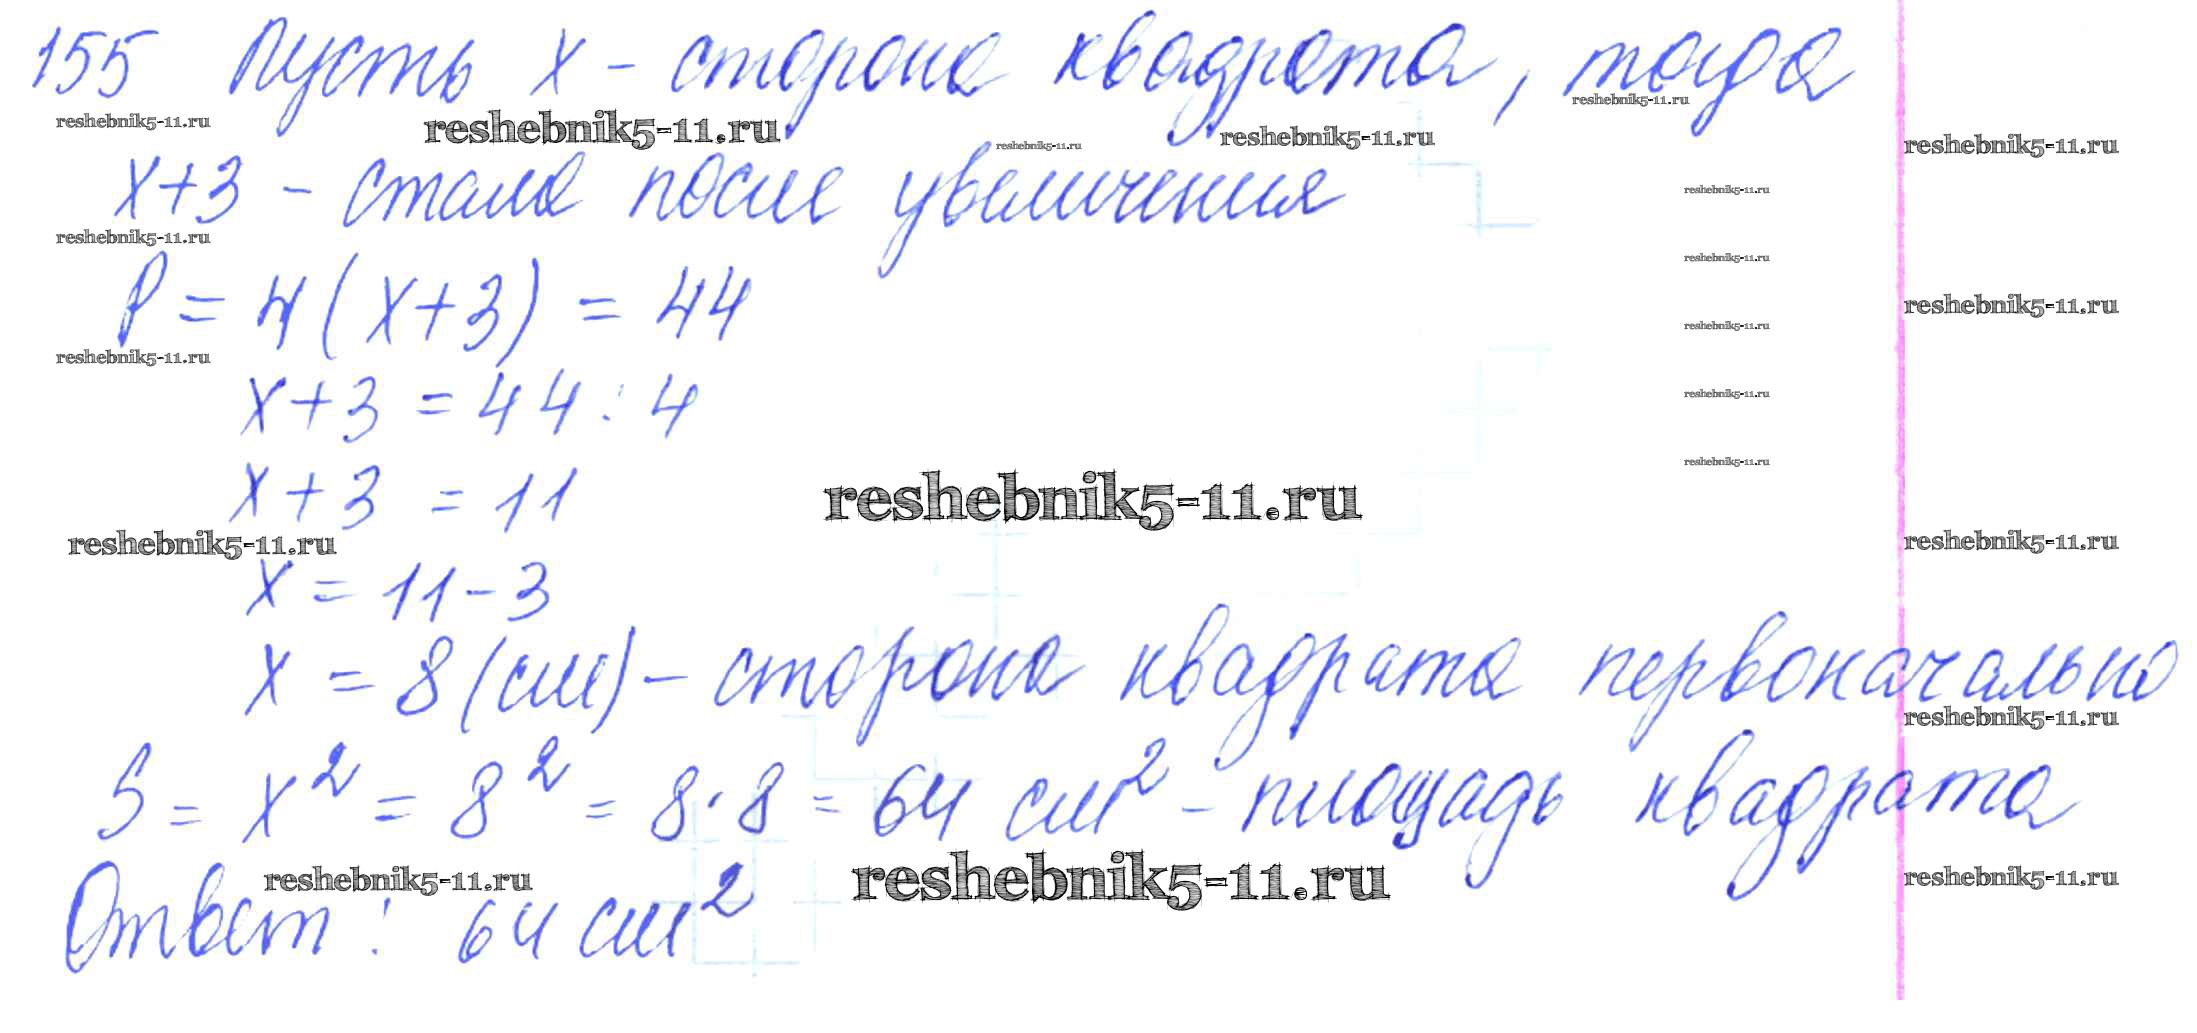 155 Пусть x - сторона квадрата, тогда
reshebnik5-11.ru reshebnik5-11.ru reshebnik5-11.ru reshebnik5-11.ru reshebnik5-11.ru reshebnik5-11.ru
x+3 - стала после увеличения reshebnik5-11.ru
reshebnik5-11.ru reshebnik5-11.ru
P = 4(x+3) = 44 reshebnik5-11.ru reshebnik5-11.ru
reshebnik5-11.ru
x+3 = 44:4 reshebnik5-11.ru
x+3 = 11 reshebnik5-11.ru reshebnik5-11.ru
reshebnik5-11.ru reshebnik5-11.ru
x = 11-3
x = 8 (см) - сторона квадрата первоначально
reshebnik5-11.ru
S = x² = 8² = 8·8 = 64 см² - площадь квадрата
reshebnik5-11.ru reshebnik5-11.ru reshebnik5-11.ru
Ответ: 64 см²